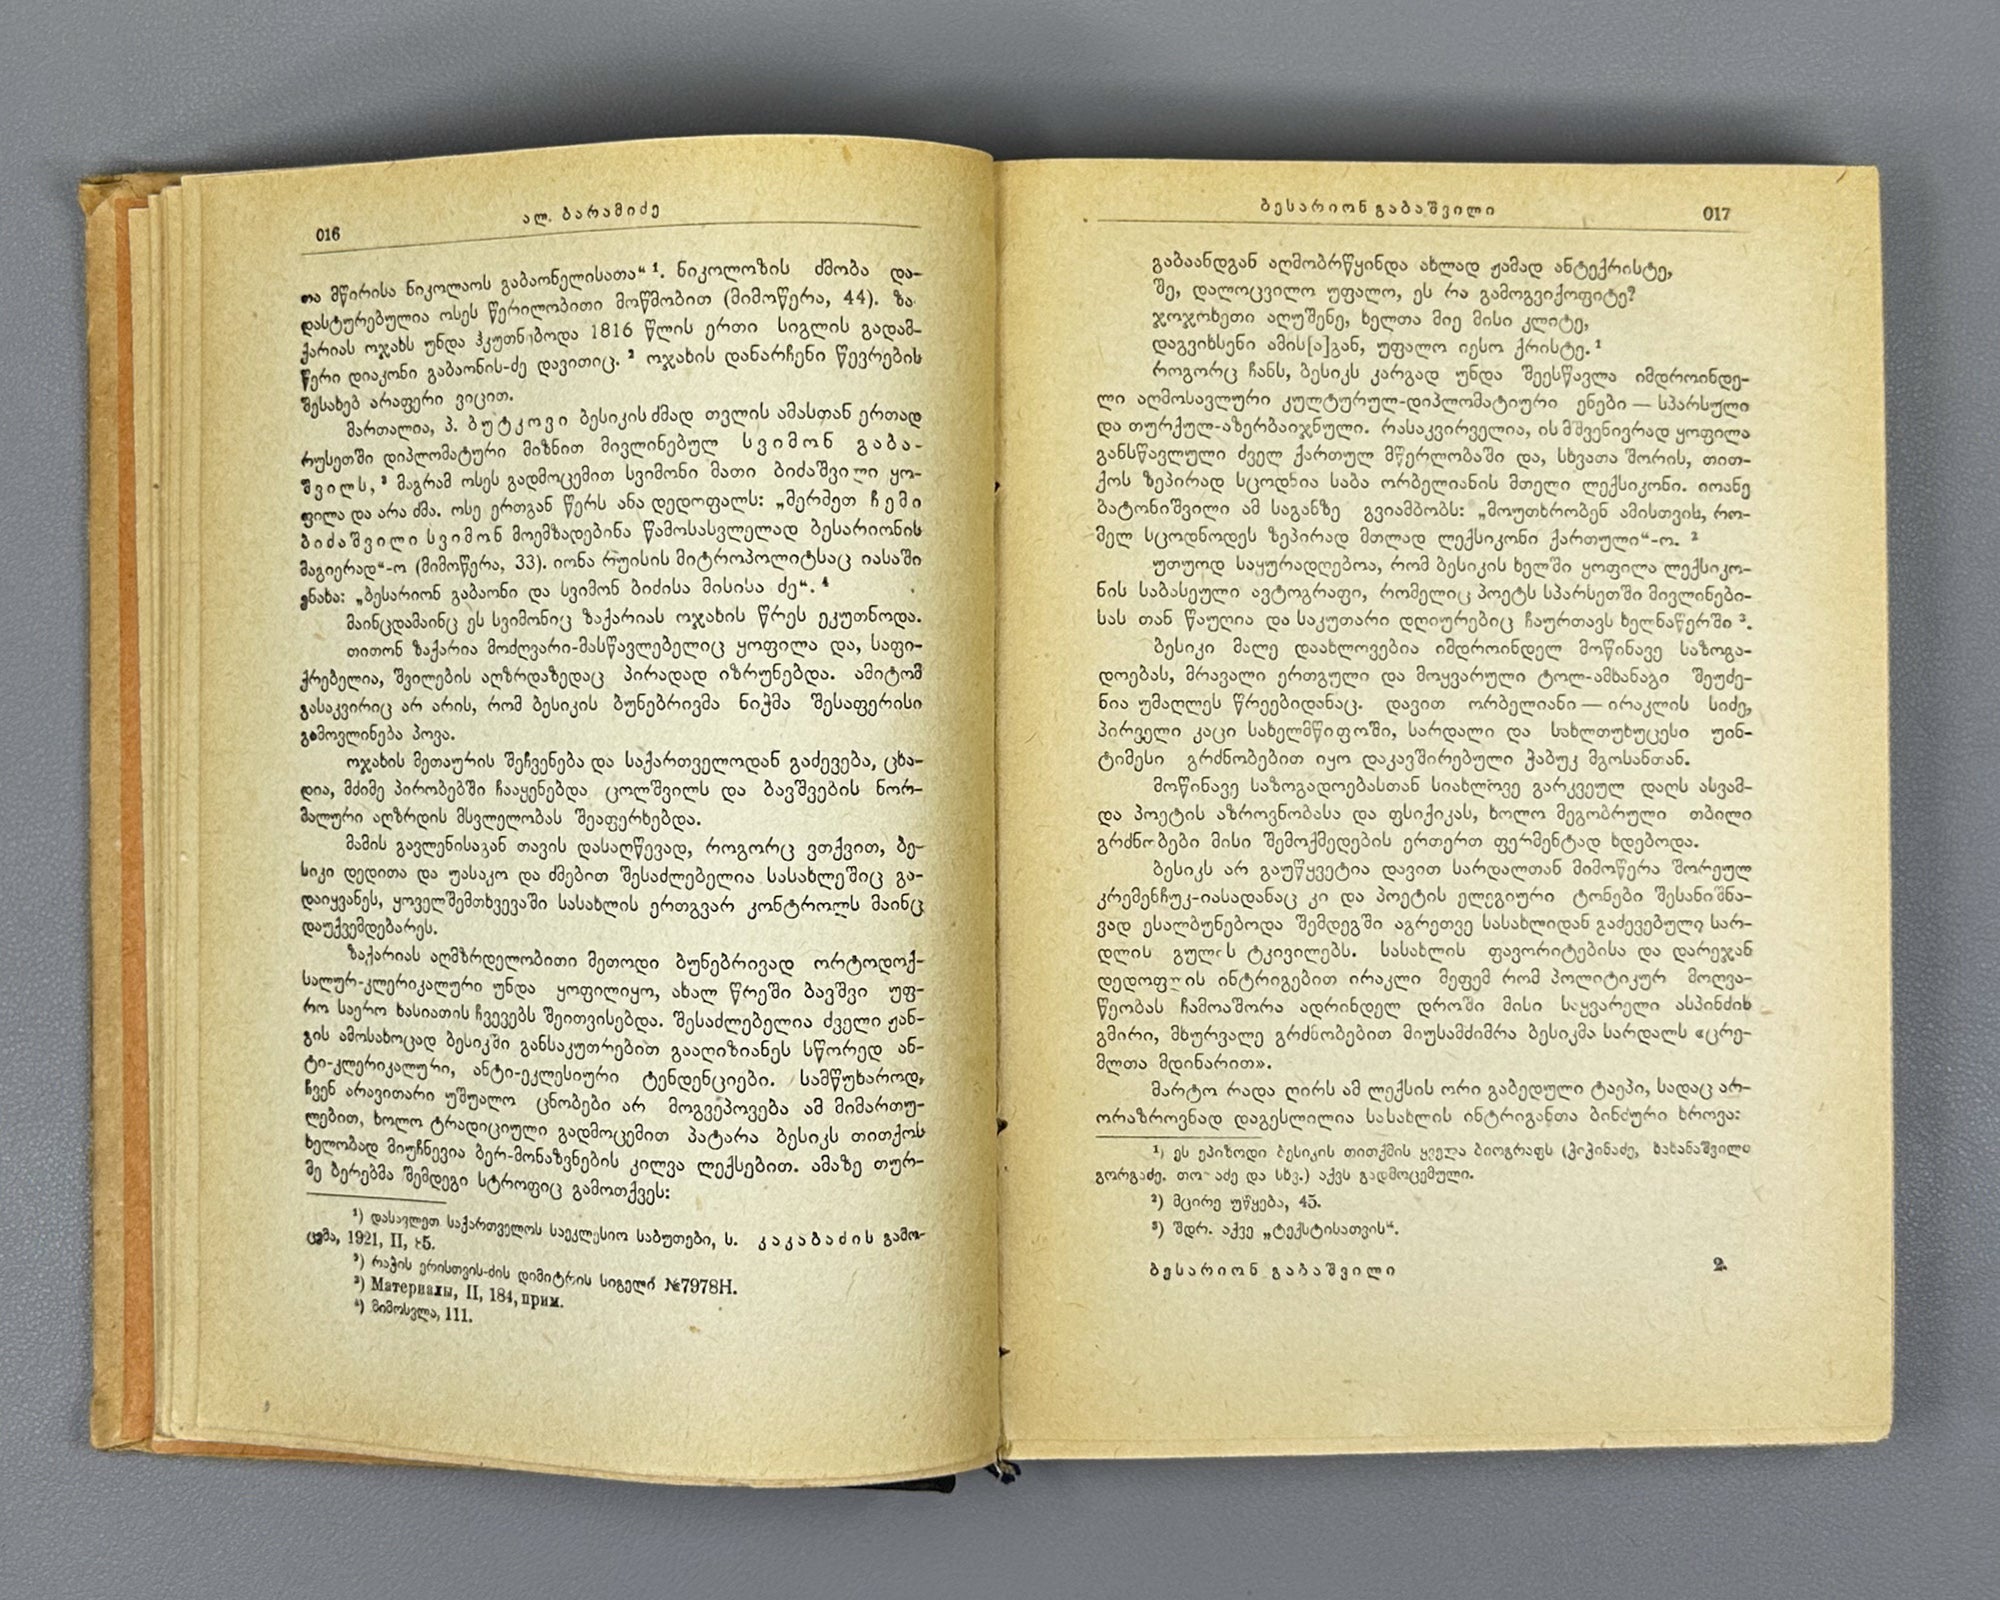 016
ალ. ბარამიძე
თა მწირისა ნიკოლაოს გაბაონელისათა“ ¹. ნიკოლოზის ძმობა და-
დასტურებულია ოსეს წერილობითი მოწმობით (მიმოწერა, 44). ზა-
ქარიას ოჯახს უნდა ჰკუთნებოდა 1816 წლის ერთი სიგლის გადამ-
წერი დიაკონი გაბაონის-ძე დავითიც. ² ოჯახის დანარჩენი წევრების
შესახებ არაფერი ვიცით.
მართალია, პ. ბუტკოვი ბესიკის ძმად თვლის ამასთან ერთად
რუსეთში დიპლომატური მიზნით მივლინებულ სვიმონ გაბა-
შვილს, ³ მაგრამ ოსეს გადმოცემით სვიმონი მათი ბიძაშვილი ყო-
ფილა და არა ძმა. ოსე ერთგან წერს ანა დედოფალს: „მერმეთ ჩემი
ბიძაშვილი სვიმონ მოემზადებინა წამოსასვლელად ბესარიონის
მაგიერად“-ო (მიმოწერა, 33). იონა რუისის მიტროპოლიტსაც იასაში
ენახა: „ბესარიონ გაბაონი და სვიმონ ბიძისა მისისა ძე“. ⁴
მაინცდამაინც ეს სვიმონიც ზაქარიას ოჯახის წრეს ეკუთნოდა.
თითონ ზაქარია მოძღვარი-მასწავლებელიც ყოფილა და, საფი-
ქრებელია, შვილების აღზრდაზედაც პირადად იზრუნებდა. ამიტომ
გასაკვირიც არ არის, რომ ბესიკის ბუნებრივმა ნიჭმა შესაფერისი
გამოვლინება პოვა.
ოჯახის მეთაურის შეჩვენება და საქართველოდან გაძევება, ცხა-
დია, მძიმე პირობებში ჩააყენებდა ცოლშვილს და ბავშვების ნორ-
მალური აღზრდის მსვლელობას შეაფერხებდა.
მამის გავლენისაგან თავის დასაღწევად, როგორც ვთქვით, ბე-
სიკი დედითა და უასაკო და ძმებით შესაძლებელია სასახლეშიც გა-
დაიყვანეს, ყოველშემთხვევაში სასახლის ერთგვარ კონტროლს მაინც
დაუქვემდებარეს.
ზაქარიას აღმზრდელობითი მეთოდი ბუნებრივად ორტოდოქ-
სალურ-კლერიკალური უნდა ყოფილიყო, ახალ წრეში ბავშვი უფ-
რო საერო ხასიათის ჩვევებს შეითვისებდა. შესაძლებელია ძველი ჟან-
გის ამოსახოცად ბესიკში განსაკუთრებით გააღიზიანეს სწორედ ან-
ტი-კლერიკალური, ანტი-ეკლესიური ტენდენციები. სამწუხაროდ,
ჩვენ არავითარი უშუალო ცნობები არ მოგვეპოვება ამ მიმართუ-
ლებით, ხოლო ტრადიციული გადმოცემით პატარა ბესიკს თითქოს
ხელობად მიუჩნევია ბერ-მონაზვნების კილვა ლექსებით. ამაზე თურ-
მე ბერებმა შემდეგი სტროფიც გამოთქვეს:
¹) დასავლეთ საქართველოს საეკლესიო საბუთები, ს. კაკაბაძის გამო-
ცემა, 1921, II, 5.
²) რაჭის ერისთვის-ძის დიმიტრის სიგელი №7978H.
³) Материалы, II, 184, прим.
⁴) მიმოსვლა, 111.
ბესარიონ გაბაშვილი
017
გაბაანდგან აღმობრწყინდა ახლად ჟამად ანტექრისტე,
შე, დალოცვილო უფალო, ეს რა გამოგვიქოფიტე?
ჯოჯოხეთი აღუშენე, ხელთა მიე მისი კლიტე,
დაგვიხსენი ამის[ა]გან, უფალო იესო ქრისტე. ¹
როგორც ჩანს, ბესიკს კარგად უნდა შეესწავლა იმდროინდე-
ლი აღმოსავლური კულტურულ-დიპლომატიური ენები — სპარსული
და თურქულ-აზერბაიჯნული. რასაკვირველია, ის მშვენივრად ყოფილა
განსწავლული ძველ ქართულ მწერლობაში და, სხვათა შორის, თით-
ქოს ზეპირად სცოდნია საბა ორბელიანის მთელი ლექსიკონი. იოანე
ბატონიშვილი ამ საგანზე გვიამბობს: „მოუთხრობენ ამისთვის, რო-
მელ სცოდნოდეს ზეპირად მთლად ლექსიკონი ქართული“-ო. ²
უთუოდ საყურადღებოა, რომ ბესიკის ხელში ყოფილა ლექსიკო-
ნის საბასეული ავტოგრაფი, რომელიც პოეტს სპარსეთში მივლინები-
სას თან წაუღია და საკუთარი დღიურებიც ჩაურთავს ხელნაწერში ³.
ბესიკი მალე დაახლოვებია იმდროინდელ მოწინავე საზოგა-
დოებას, მრავალი ერთგული და მოყვარული ტოლ-ამხანაგი შეუძე-
ნია უმაღლეს წრეებიდანაც. დავით ორბელიანი — ირაკლის სიძე,
პირველი კაცი სახელმწიფოში, სარდალი და სახლთუხუცესი უინ-
ტიმესი გრძნობებით იყო დაკავშირებული ჭაბუკ მგოსანთან.
მოწინავე საზოგადოებასთან სიახლოვე გარკვეულ დაღს ასვამ-
და პოეტის აზროვნობასა და ფსიქიკას, ხოლო მეგობრული თბილი
გრძნობები მისი შემოქმედების ერთერთ ფერმენტად ხდებოდა.
ბესიკს არ გაუწყვეტია დავით სარდალთან მიმოწერა შორეულ
კრემენჩუკ-იასადანაც კი და პოეტის ელეგიური ტონები შესანიშნა-
ვად ესალბუნებოდა შემდეგში აგრეთვე სასახლიდან გაძევებული სარ-
დლის გულის ტკივილებს. სასახლის ფავორიტებისა და დარეჯან
დედოფლის ინტრიგებით ირაკლი მეფემ რომ პოლიტიკურ მოღვა-
წეობას ჩამოაშორა ადრინდელ დროში მისი საყვარელი ასპინძის
გმირი, მხურვალე გრძნობებით მიუსამძიმრა ბესიკმა სარდალს «ცრე-
მლთა მდინარით».
მარტო რადა ღირს ამ ლექსის ორი გაბედული ტაეპი, სადაც არ-
ორაზროვნად დაგესლილია სასახლის ინტრიგანთა ბინძური ხროვა:
¹) ეს ეპიზოდი ბესიკის თითქმის ყველა ბიოგრაფს (ჭიჭინაძე, ხახანაშვილი
გორგაძე, აძე და სხვ.) აქვს გადმოცემული.
²) მცირე უწყება, 45.
³) შდრ. აქვე „ტექსტისათვის“.
ბესარიონ გაბაშვილი
2.